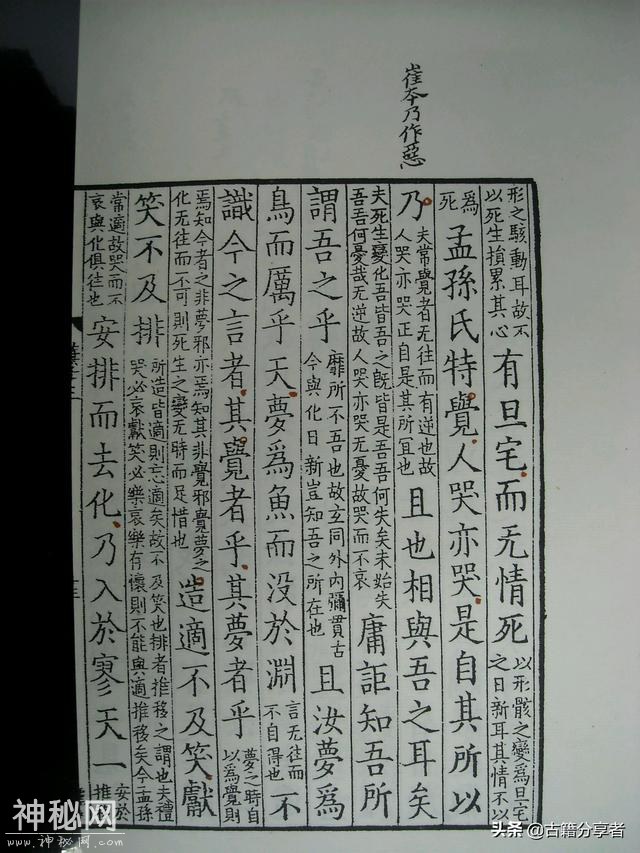 崔本乃作惡
形之駭動耳故不
以死生損累其心
有旦宅而无情死
以形骸之變爲旦宅
之日新耳其情不以
爲
死
孟孫氏特覺人哭亦哭是自其所以
乃
夫常覺者无往而有逆也故
人哭亦哭正自是其所宜也
且也相與吾之耳矣
夫死生變化吾皆吾之既皆是吾吾何失矣未始失
吾吾何憂哉无逆故人哭亦哭无憂故哭而不哀
庸詎知吾所
謂吾之乎
靡所不吾也故玄同外内彌貫古
今與化日新豈知吾之所在也
且汝夢爲
鳥而厲乎天夢爲魚而没於淵
言无往而
不自得也
不
識今之言者其覺者乎其夢者乎
夢之時自
以爲覺則
焉知今者之非夢邪亦焉知其非覺邪覺夢之
化无往而不可則死生之變无時而足惜也
造適不及笑獻
笑不及排
所造皆適則忘適矣故不及笑也排者推移之謂也夫禮
哭必哀獻笑必樂哀樂有懷則不能與適推移矣今孟孫
常適故哭而不
哀與化俱往也
安排而去化乃入於寥天一
安於
推
神秘网
www.神秘网.com
头条 @古籍分享者